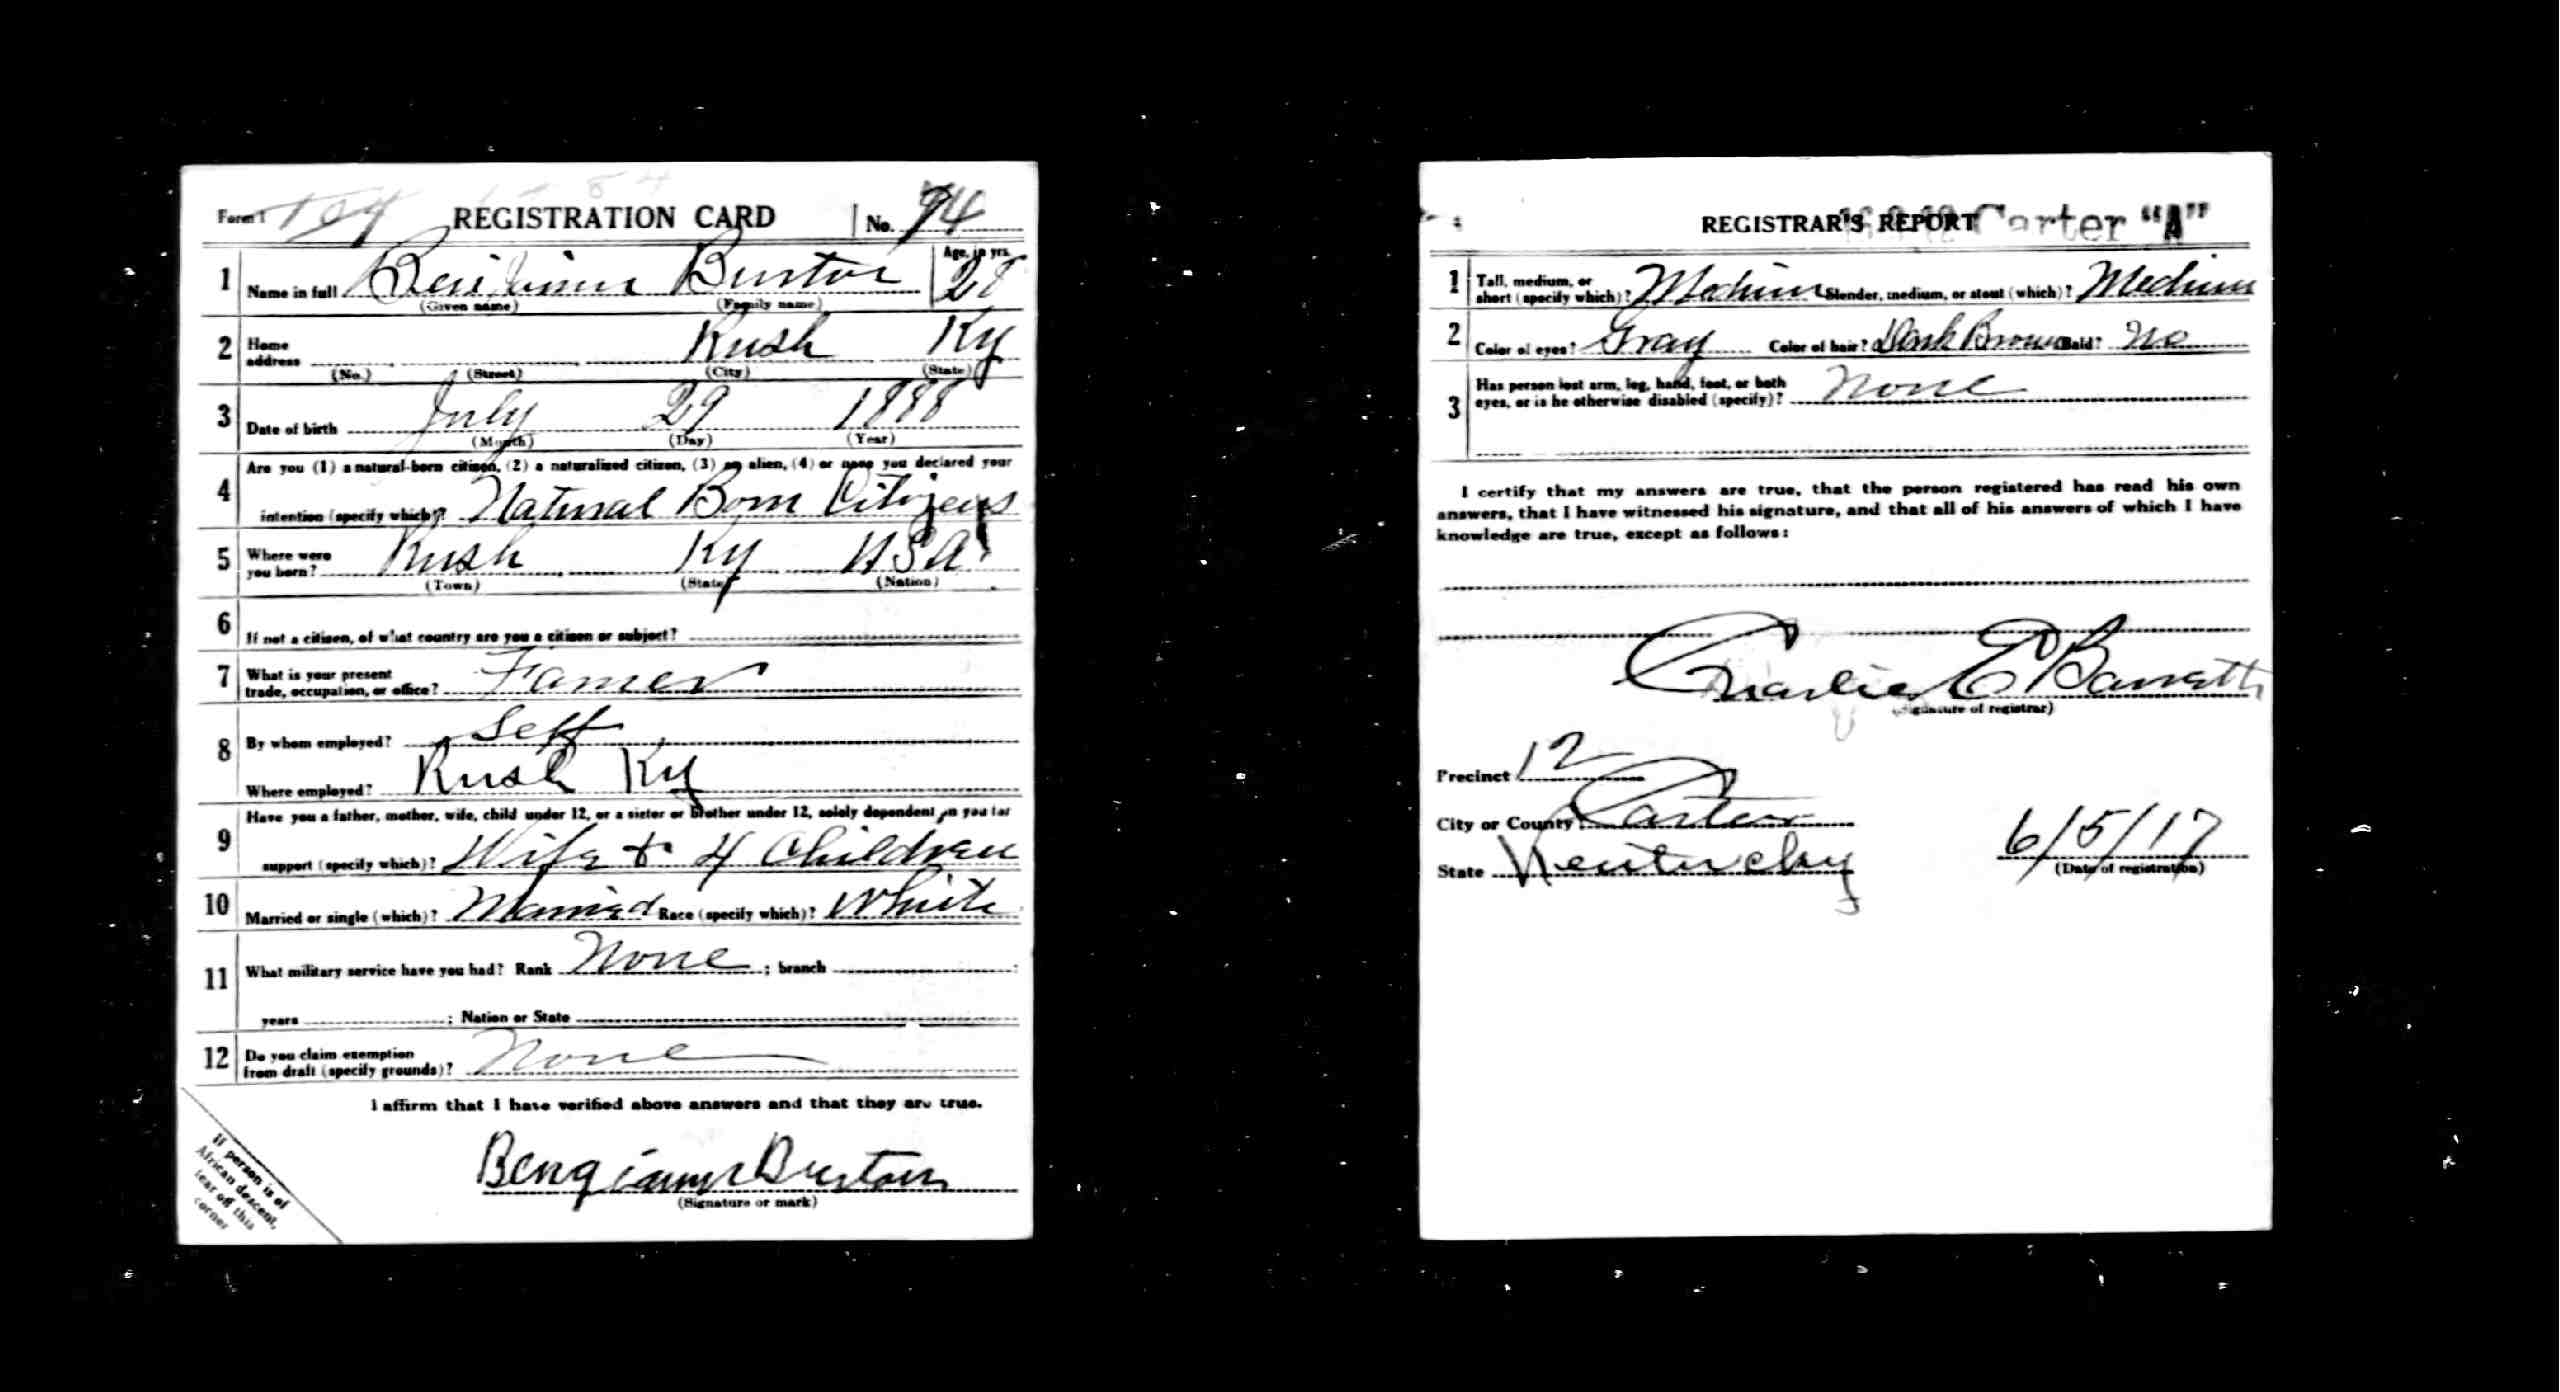 Form 1 REGISTRATION CARD No. 94
1 Name in full Benjamin Burton Age, in yrs. 28
(Given name) (Family name)
2 Home address Rush Ky
(No.) (Street) (City) (State)
3 Date of birth July 29 1888
(Month) (Day) (Year)
4 Are you (1) a natural-born citizen, (2) a naturalized citizen, (3) an alien, (4) or have you declared your
intention (specify which)? Natural Born Citizens
5 Where were you born? Rush Ky USA
(Town) (State) (Nation)
6 If not a citizen, of what country are you a citizen or subject?
7 What is your present trade, occupation, or office? Famer
8 By whom employed? Self
Where employed? Rush Ky
9 Have you a father, mother, wife, child under 12, or a sister or brother under 12, solely dependent on you for
support (specify which)? Wife & 4 Children
10 Married or single (which)? Married Race (specify which)? White
11 What military service have you had? Rank None ; branch
years ; Nation or State
12 Do you claim exemption from draft (specify grounds)? None
I affirm that I have verified above answers and that they are true.
Bengiamn Burton
(Signature or mark)
If person is of
African descent,
tear off this
corner
REGISTRAR'S REPORT Carter "A"
1 Tall, medium, or short (specify which)? Medium Slender, medium, or stout (which)? Medium
2 Color of eyes? Gray Color of hair? Dark Brown Bald? No
3 Has person lost arm, leg, hand, foot, or both
eyes, or is he otherwise disabled (specify)? None
I certify that my answers are true, that the person registered has read his own
answers, that I have witnessed his signature, and that all of his answers of which I have
knowledge are true, except as follows:
Charlie E Barrett
(Signature of registrar)
Precinct 12
City or County Carter
State Kentucky 6/5/17
(Date of registration)